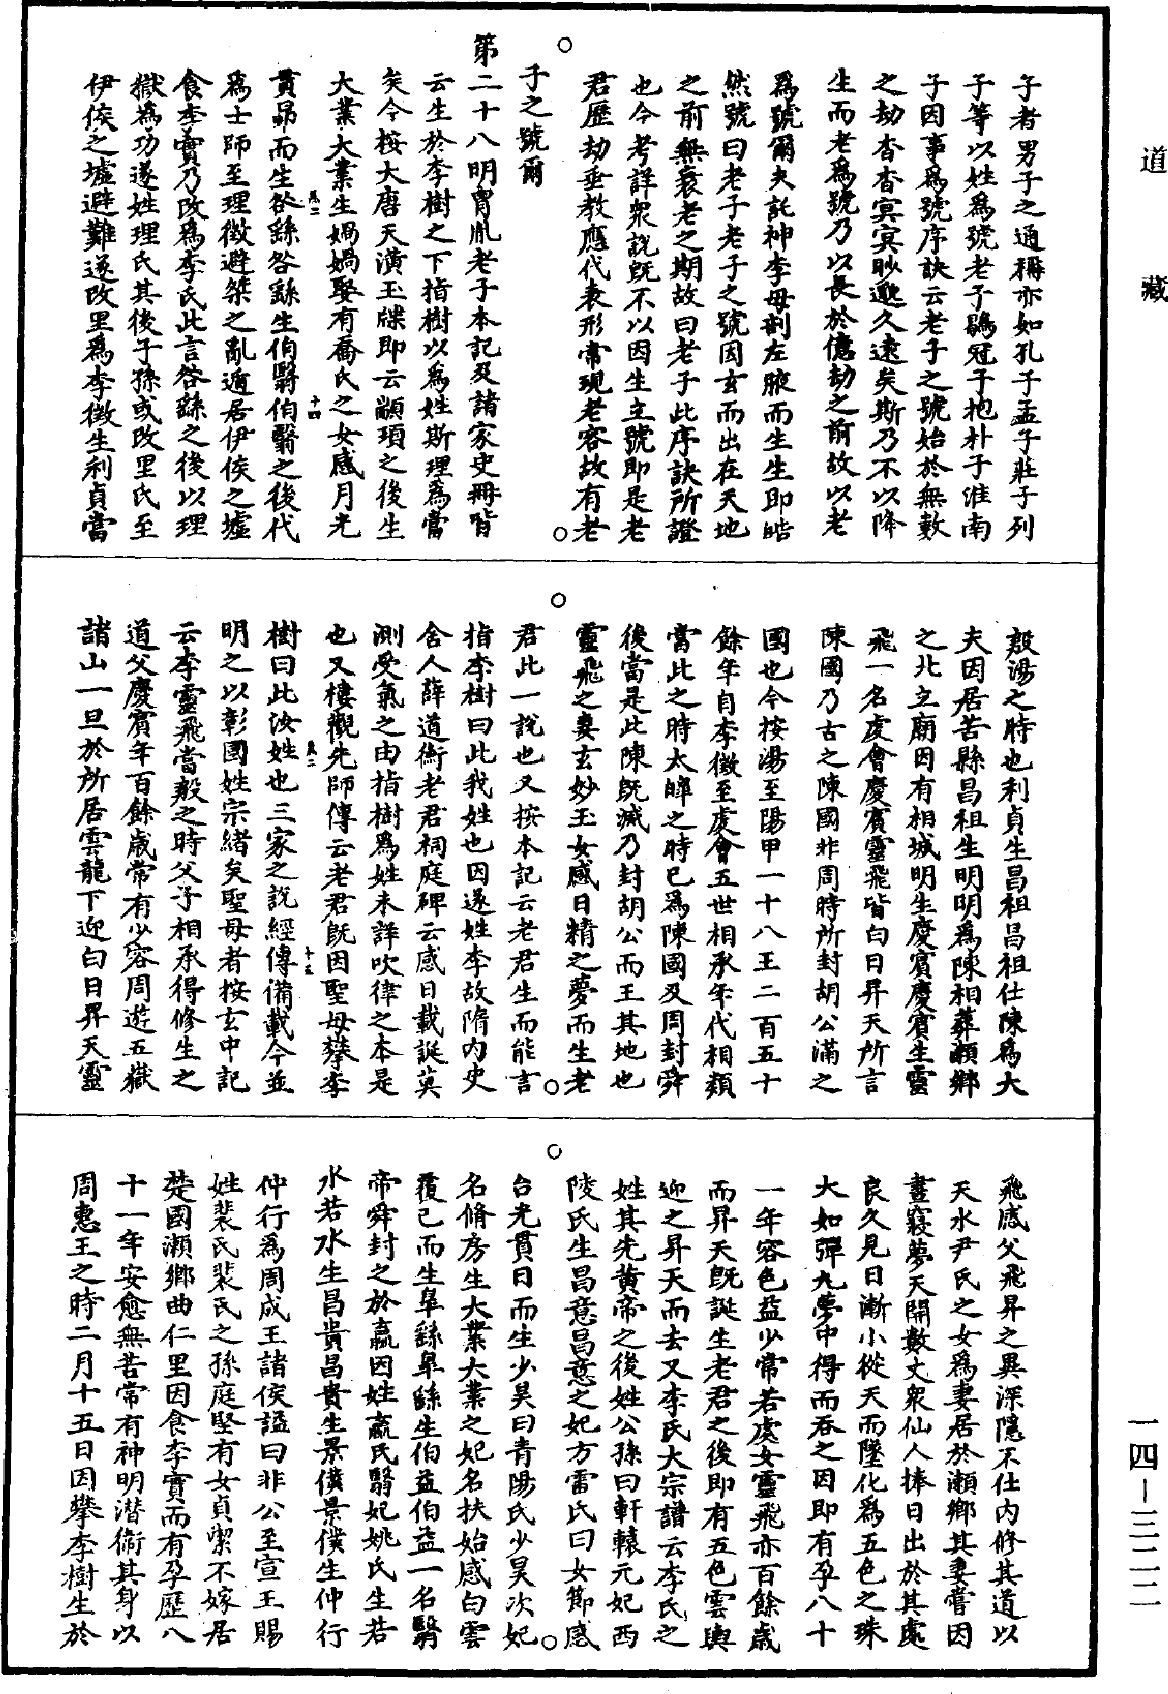 道藏
子者男子之通稱亦如孔子孟子莊子列
子等以姓爲號老子鶡冠子抱朴子淮南
子因事爲號序訣云老子之號始於無數
之劫杳杳冥冥眇邈久遠矣斯乃不以降
生而老爲號乃以長於億劫之前故以老
爲號爾夫託神李母剖左腋而生生即皓
然號曰老子老子之號因玄而出在天地
之前無衰老之期故曰老子此序訣所證
也今考詳衆說旣不以因生立號即是老
君歷劫垂教應代表形常現老容故有老
子之號爾
第二十八明胄胤老子本記及諸家史冊皆
云生於李樹之下指樹以爲姓斯理爲當
矣今按大唐天潢玉牒即云顓頊之後生
大業大業生媧媧娶有喬氏之女感月光
貫昴而生咎繇咎繇生伯翳伯翳之後代
爲士師至理徵避桀之亂遁居伊侯之墟
食李實乃改爲李氏此言咎繇之後以理
獄爲功遂姓理氏其後子孫或改里氏至
伊侯之墟避難遂改里爲李徵生利貞當
殷湯之時也利貞生昌祖昌祖仕陳爲大
夫因居苦縣昌祖生明明爲陳相葬瀨鄉
之北立廟因有相城明生慶賓慶賓生靈
飛一名虔會慶賓靈飛皆白日昇天所言
陳國乃古之陳國非周時所封胡公滿之
國也今按湯至陽甲一十八王二百五十
餘年自李徵至虔會五世相承年代相類
當此之時太皞之時已爲陳國及周封舜
後當是此陳旣滅乃封胡公而王其地也
靈飛之妻玄妙玉女感日精之夢而生老
君此一說也又按本記云老君生而能言
指李樹曰此我姓也因遂姓李故隋內史
舍人薛道衡老君祠庭碑云感日載誕莫
測受氣之由指樹爲姓未詳吹律之本是
也又樓觀先師傳云老君旣因聖母攀李
樹曰此汝姓也三家之說經傳備載今並
明之以彰國姓宗緒矣聖母者按玄中記
云李靈飛當殷之時父子相承得修生之
道父慶賓年百餘歲常有少容周遊五嶽
諸山一旦於所居雲龍下迎白日昇天靈
飛感父飛昇之異深隱不仕內修其道以
天水尹氏之女爲妻居於瀨鄉其妻嘗因
晝寢夢天開數丈衆仙人捧日出於其處
良久見日漸小從天而墜化爲五色之珠
大如彈丸夢中得而吞之因即有孕八十
一年容色益少常若處女靈飛亦百餘歲
而昇天旣誕生老君之後即有五色雲輿
迎之昇天而去又李氏大宗譜云李氏之
姓其先黃帝之後姓公孫曰軒轅元妃西
陵氏生昌意昌意之妃方雷氏曰女節感
台光貫日而生少昊曰青陽氏少昊次妃
名脩房生大業大業之妃名扶始感白雲
覆己而生皐繇皐繇生伯益伯益一名翳
帝舜封之於嬴因姓嬴氏翳妃姚氏生若
水若水生昌貴昌貴生景僕景僕生仲行
仲行爲周成王諸侯謚曰非公至宣王賜
姓裴氏裴氏之孫庭堅有女貞潔不嫁居
楚國瀨鄉曲仁里因食李實而有孕歷八
十一年安愈無苦常有神明潜衛其身以
周惠王之時二月十五日因攀李樹生於
一四—三二二